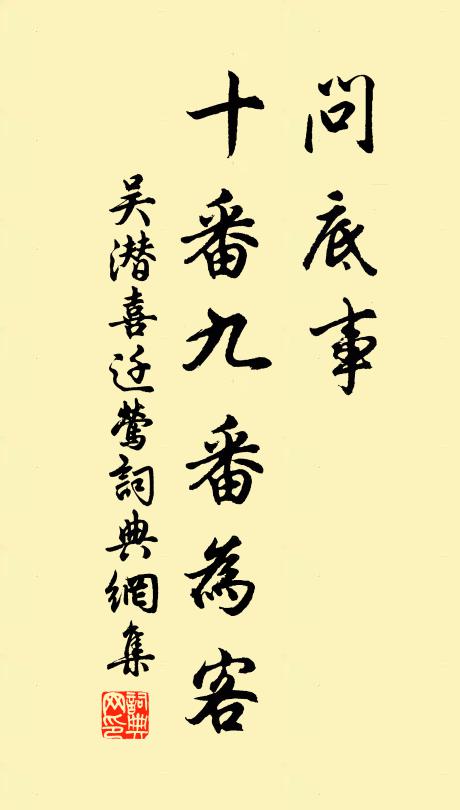 問底事
十番九番為客
吳潛喜迁鶯詞典網集
詞典网印